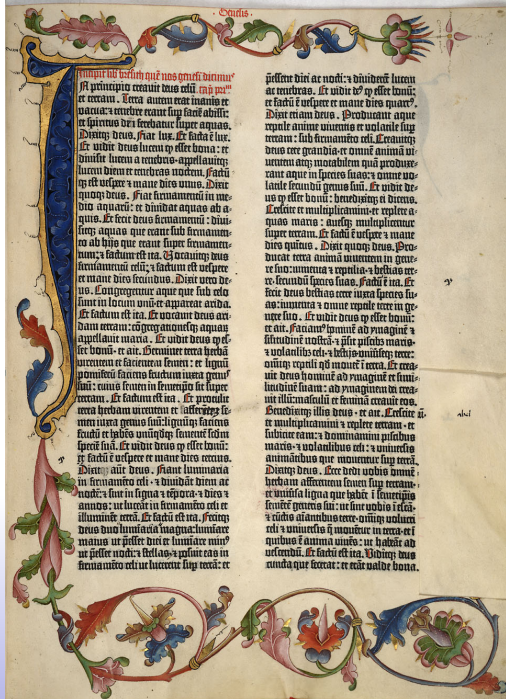 Genesis
Incipit lib̃ bresith quē nos genesī dicim⁹
In principio creauit deus celū
et terram. Terra autem erat inanis et
vacua: ⁊ tenebre erant sup̄ faciē abissi:
et spiritus dñi ferebatur super aquas.
Dixitq̃ deus. Fiat lux. Et facta ē lux.
Et vidit deus lucem q̃ esset bona: et
diuisit lucem a tenebris · appellauitq̃
lucem diem et tenebras noctem. Factū
q̃ est vespere ⁊ mane dies vnus. Dixit
quoq̃ deus. Fiat firmamentū in me-
dio aquarū: et diuidat aquas ab a-
quis. Et fecit deus firmamentū: diui-
sitq̃ aquas que erant sub firmamen-
to ab hijs que erant super firmamen-
tum: ⁊ factum est ita. Vocauitq̃ deus
firmamentū celū: ⁊ factum est vespere
et mane dies secundus. Dixit vero de-
us. Congregentur aque que sub celo
sunt in locum vnū et appareat arida.
Et factum est ita. Et vocauit deus ari-
dam terram: cōgregationesq̃ aquaȝ
appellauit maria. Et vidit deus q̃ es-
set bonū · et ait. Germinet terra herbā
virentem et facientem semen: et lignū
pomiferū faciens fructum iuxta genus
suū: cuius semen in semetipo sit super
terram. Et factum est ita. Et protulit
terra herbam virentem et
men iuxta genus suū: lignūq̃ faciens
fructū et habēs vnūqdq̃ sementē scdm̄
specie suā. Et vidit deus q̃ esset bonū:
et factū ē vespere et mane dies tercius.
Dixitq̃ aūt deus. Fiant luminaria
in firmamēto celi · ⁊ diuidāt diem ac
noctē: ⁊ sint in signa ⁊ tēpora · ⁊ dies ⁊
annos: ut luceāt in firmamēto celi et
illuminēt terrā. Et factū est ita. Fecitq̃
deus duo luminaria magna: luminare
maius ut p̄esset diei et luminare min⁹
ut p̄esset nocti: ⁊ stellas · ⁊ posuit eas in
firmamēto celi ut lucerent sup̄ terrā: et
p̄essent diei ac nocti: ⁊ diuiderēt lucem
ac tenebras. Et vidit de⁹ q̃ esset bonū:
et factū ē vespere et mane dies quart⁹.
Dixit etiam deus. Producant aque
reptile anime viuentis et volatile sup̄
terram: sub firmamēto celi. Creauitq̃
deus cete grandia · et omnē animā vi-
uentem atq̃ motabilem quā produxe-
rant aque in species suas: ⁊ omne vo-
latile secundū genus suū. Et vidit de-
us q̃ esset bonū: benedixitq̃ ei dicens.
Crescite et multiplicamini · et replete a-
quas maris: auesq̃ multiplicentur
super terram. Et factū ē vespere ⁊ mane
dies quintus. Dixit quoq̃ deus. Pro-
ducat terra animā viuentem in gene-
re suo: iumenta ⁊ reptilia · ⁊ bestias ter-
re · secundū species suas. Factū ē ita. Et
fecit deus bestias terre iuxta species su-
as: iumenta ⁊ omne reptile terre in ge-
nere suo. Et vidit deus q̃ esset bonū:
et ait. Faciam⁹ hominē ad ymaginē ⁊
similitudinē nostrā · ⁊ p̄sit piscib⁹ maris ·
et volatilib⁹ celi · ⁊ bestijs · vniuseq̃ terre:
omniq̃ reptili qd mouet ī terra. Et crea-
uit deus hominē ad ymaginē et simi-
litudinē suam: ad ymaginem dei crea-
uit illū: masculū et feminā creauit eos.
Benedixitq̃ illis deus · et ait. Crescite
et multiplicamini ⁊ replete terram · et
subicite eam: ⁊ dominamini piscibus
maris · ⁊ volatilibus celi: ⁊ vniuersis
animātibus que mouentur sup̄ terrā.
Dixitq̃ deus. Ecce dedi vobis omnē
herbam afferentem semen sup̄ terram ·
et vniūsa ligna que habēt ī semetipis
sementē generis sui: ut sint vobis ī escā ·
⁊ cūctis aīantibus terre · omīq̃ volucri
celi ⁊ vniuersis q̃ mouētur in terra · et ī
quibus ē anima viuēs: ut habeāt ad
vescendū. Et factū est ita. Viditq̃ deus
cuncta que fecerat: et erāt valde bona.